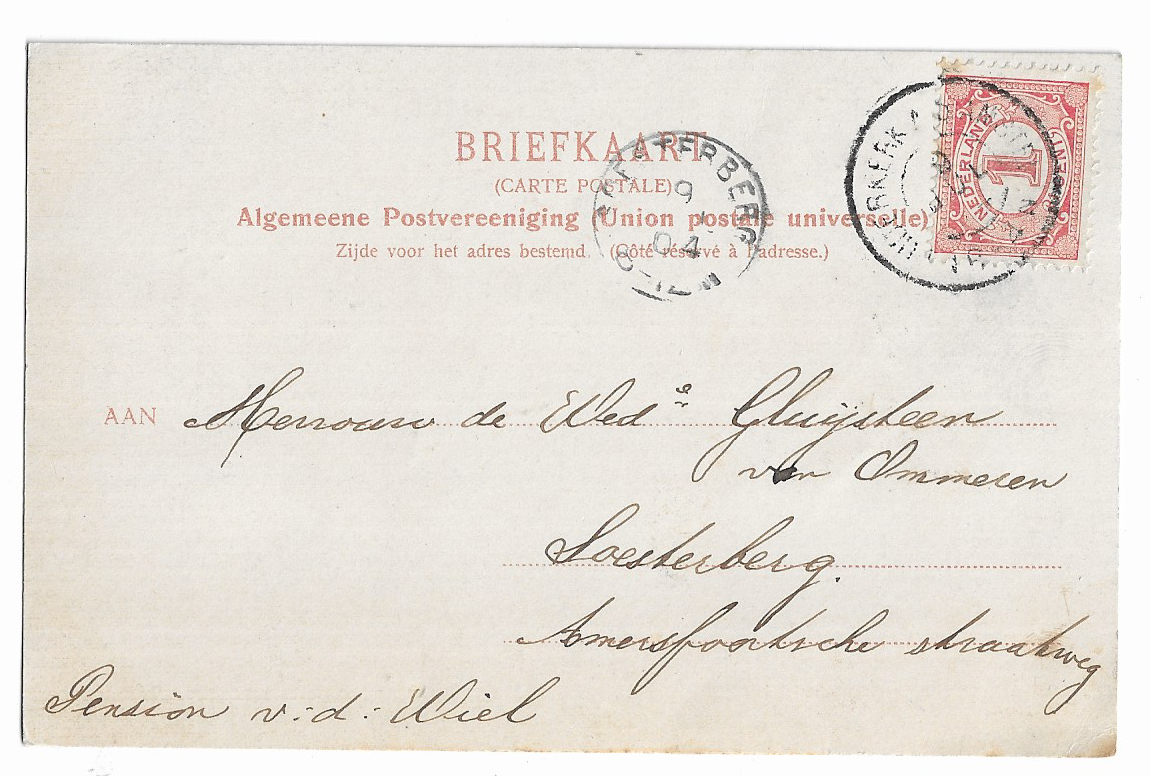 BRIEFKAART
(CARTE POSTALE)
Algemeene Postvereeniging (Union postale universelle)
Zijde voor het adres bestemd. (Côté réservé à l'adresse.)
SOESTERBERG
9
04
NEDERLAND
1
CENT
AAN Mevrouw de Wed. Gluijsteen
van Ommeren
Soesterberg.
Amersfoortsche straatweg
Pension v. d. Wiel